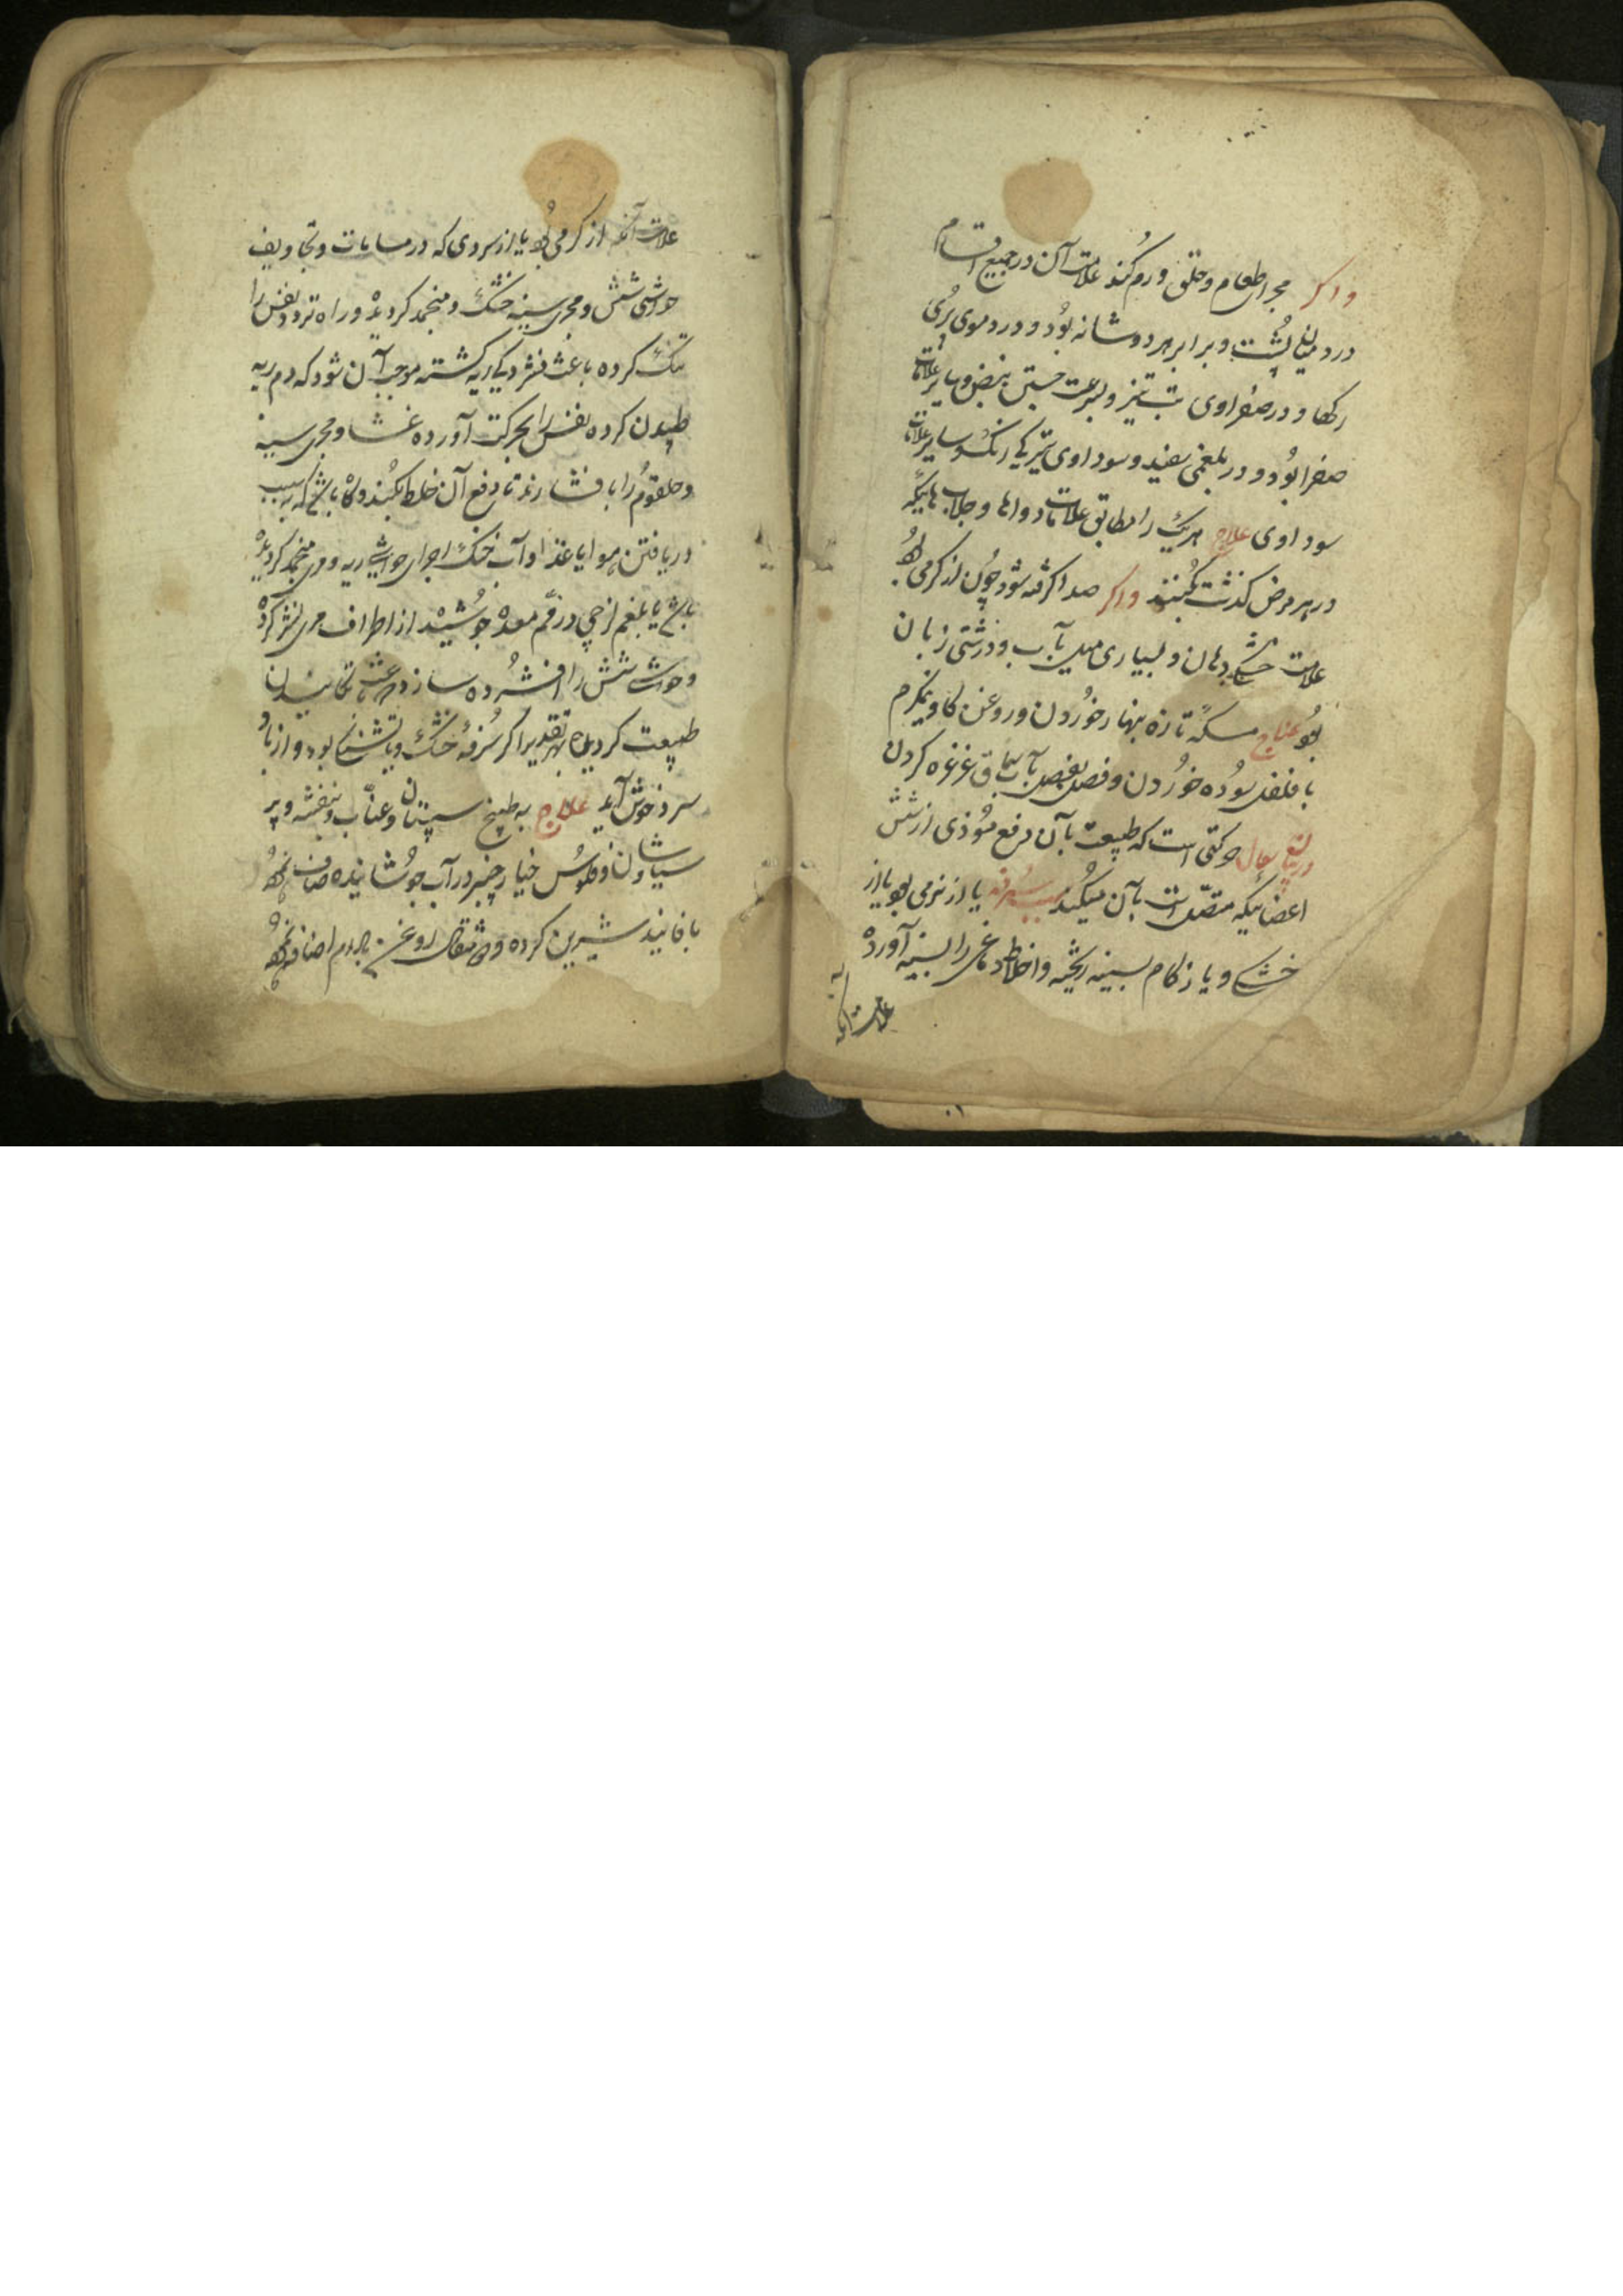 واکر مجرای طعام و حلق ورم کند علامت آن در جمیع اقسام
درد میان پشت و برابر هر دو شانه بود و در دموی پری
رکها و در صفراوی تب تیز و سرعت جستن نبض و سایر علامات
صفرا بود و در بلغمی سفیدی و سوداوی تیرکی رنک و سایر علامات
سوداوی علاج هر یک را مطابق علامات دواها و جلاب هائیکه
در هر مرض کذشت بکنند واکر صدا کرفته شود چون از کرمی بود
علامت خشکی دهان و بسیاری میل بآب و درشتی زبان
بود علاج مسکه تازه بنهار خوردن و روغن کاو نیمکرم
با فلفل سوده خوردن و فصل بفصل بآب سماق غرغره کردن
در بیان سعال حرکتی است که طبیعت بآن دفع موذی از شش
اعضائیکه متصل است بآن میکند سبب سرفه یا از نرمی بود یا از
خشکی و یا زکام بسینه ریخته و اخلاط دماغی را بسینه آورده
علامت آنکه
علامت آنکه از کرمی بود یا از سردی که در مسامات و تجاویف
حواشی شش و مجری سینه خشک و منجمد کردیده و راه تردد نفس را
تنک کرده باعث فشردکی ریه کشته موجب آن شود که دم ریه
طپیدن کرده نفس را بحرکت آورده غشا و مجری سینه
و حلقوم را با فشارند تا دفع آن خلط بکنند و کاه باشد که بسبب
دریافتن هوا یا غذا و آب خنک اجزای حواشی ریه و مری منجمد کردیده
باشد یا بلغم لزجی در فم معده جوشیده از اطراف مری نشر کرده
و حواشی شش را افشرده سازد باعث تکانیدن
طبیعت کردیده بهر تقدیر اکر سرفه خشک و با تشنکی بود و از باد
سرد خوش آید علاج به طبیخ سپستان و عناب و بنفشه و پر
سیاوشان و فلوس خیار چنبر در آب جوشانیده صاف نموده
با فانیذ شیرین کرده و مثقال روغن بادام اضافه نموده